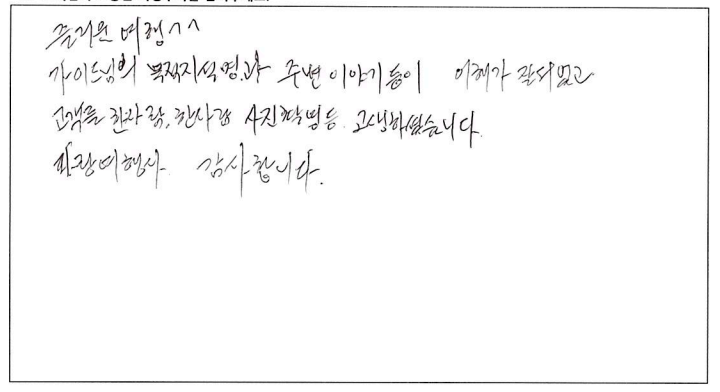 즐거운 여행^^
가이드님의 목적지설명과 주변이야기등이 이해가 잘되었고
고객를 한사람, 한사람 사진촬영등 고생하셨습니다.
여행사 감사합니다.